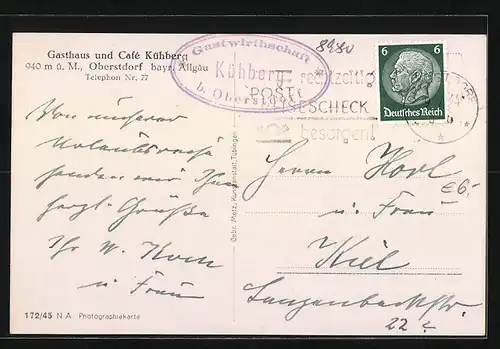 Gasthaus und Café Kühberg
940 m ü. M., Oberstdorf bayr. Allgäu
Telephon Nr. 77
Gastwirthschaft
Kühberg
b. Oberstdorf
8980
rechtzeitig
POST
REISESCHECK
besorgen!
6 6
Deutsches Reich
Von unserer
Urlaubsreise
senden wir Ihnen
herzl. Grüße
Ihr W. Koch
u. Frau
Gebr. Metz, Kunstanstalt, Tübingen
Herrn Horl
u. Frau
Kiel
Langenbeckstr.
22
€6.-
172/45 N A Photographiekarte